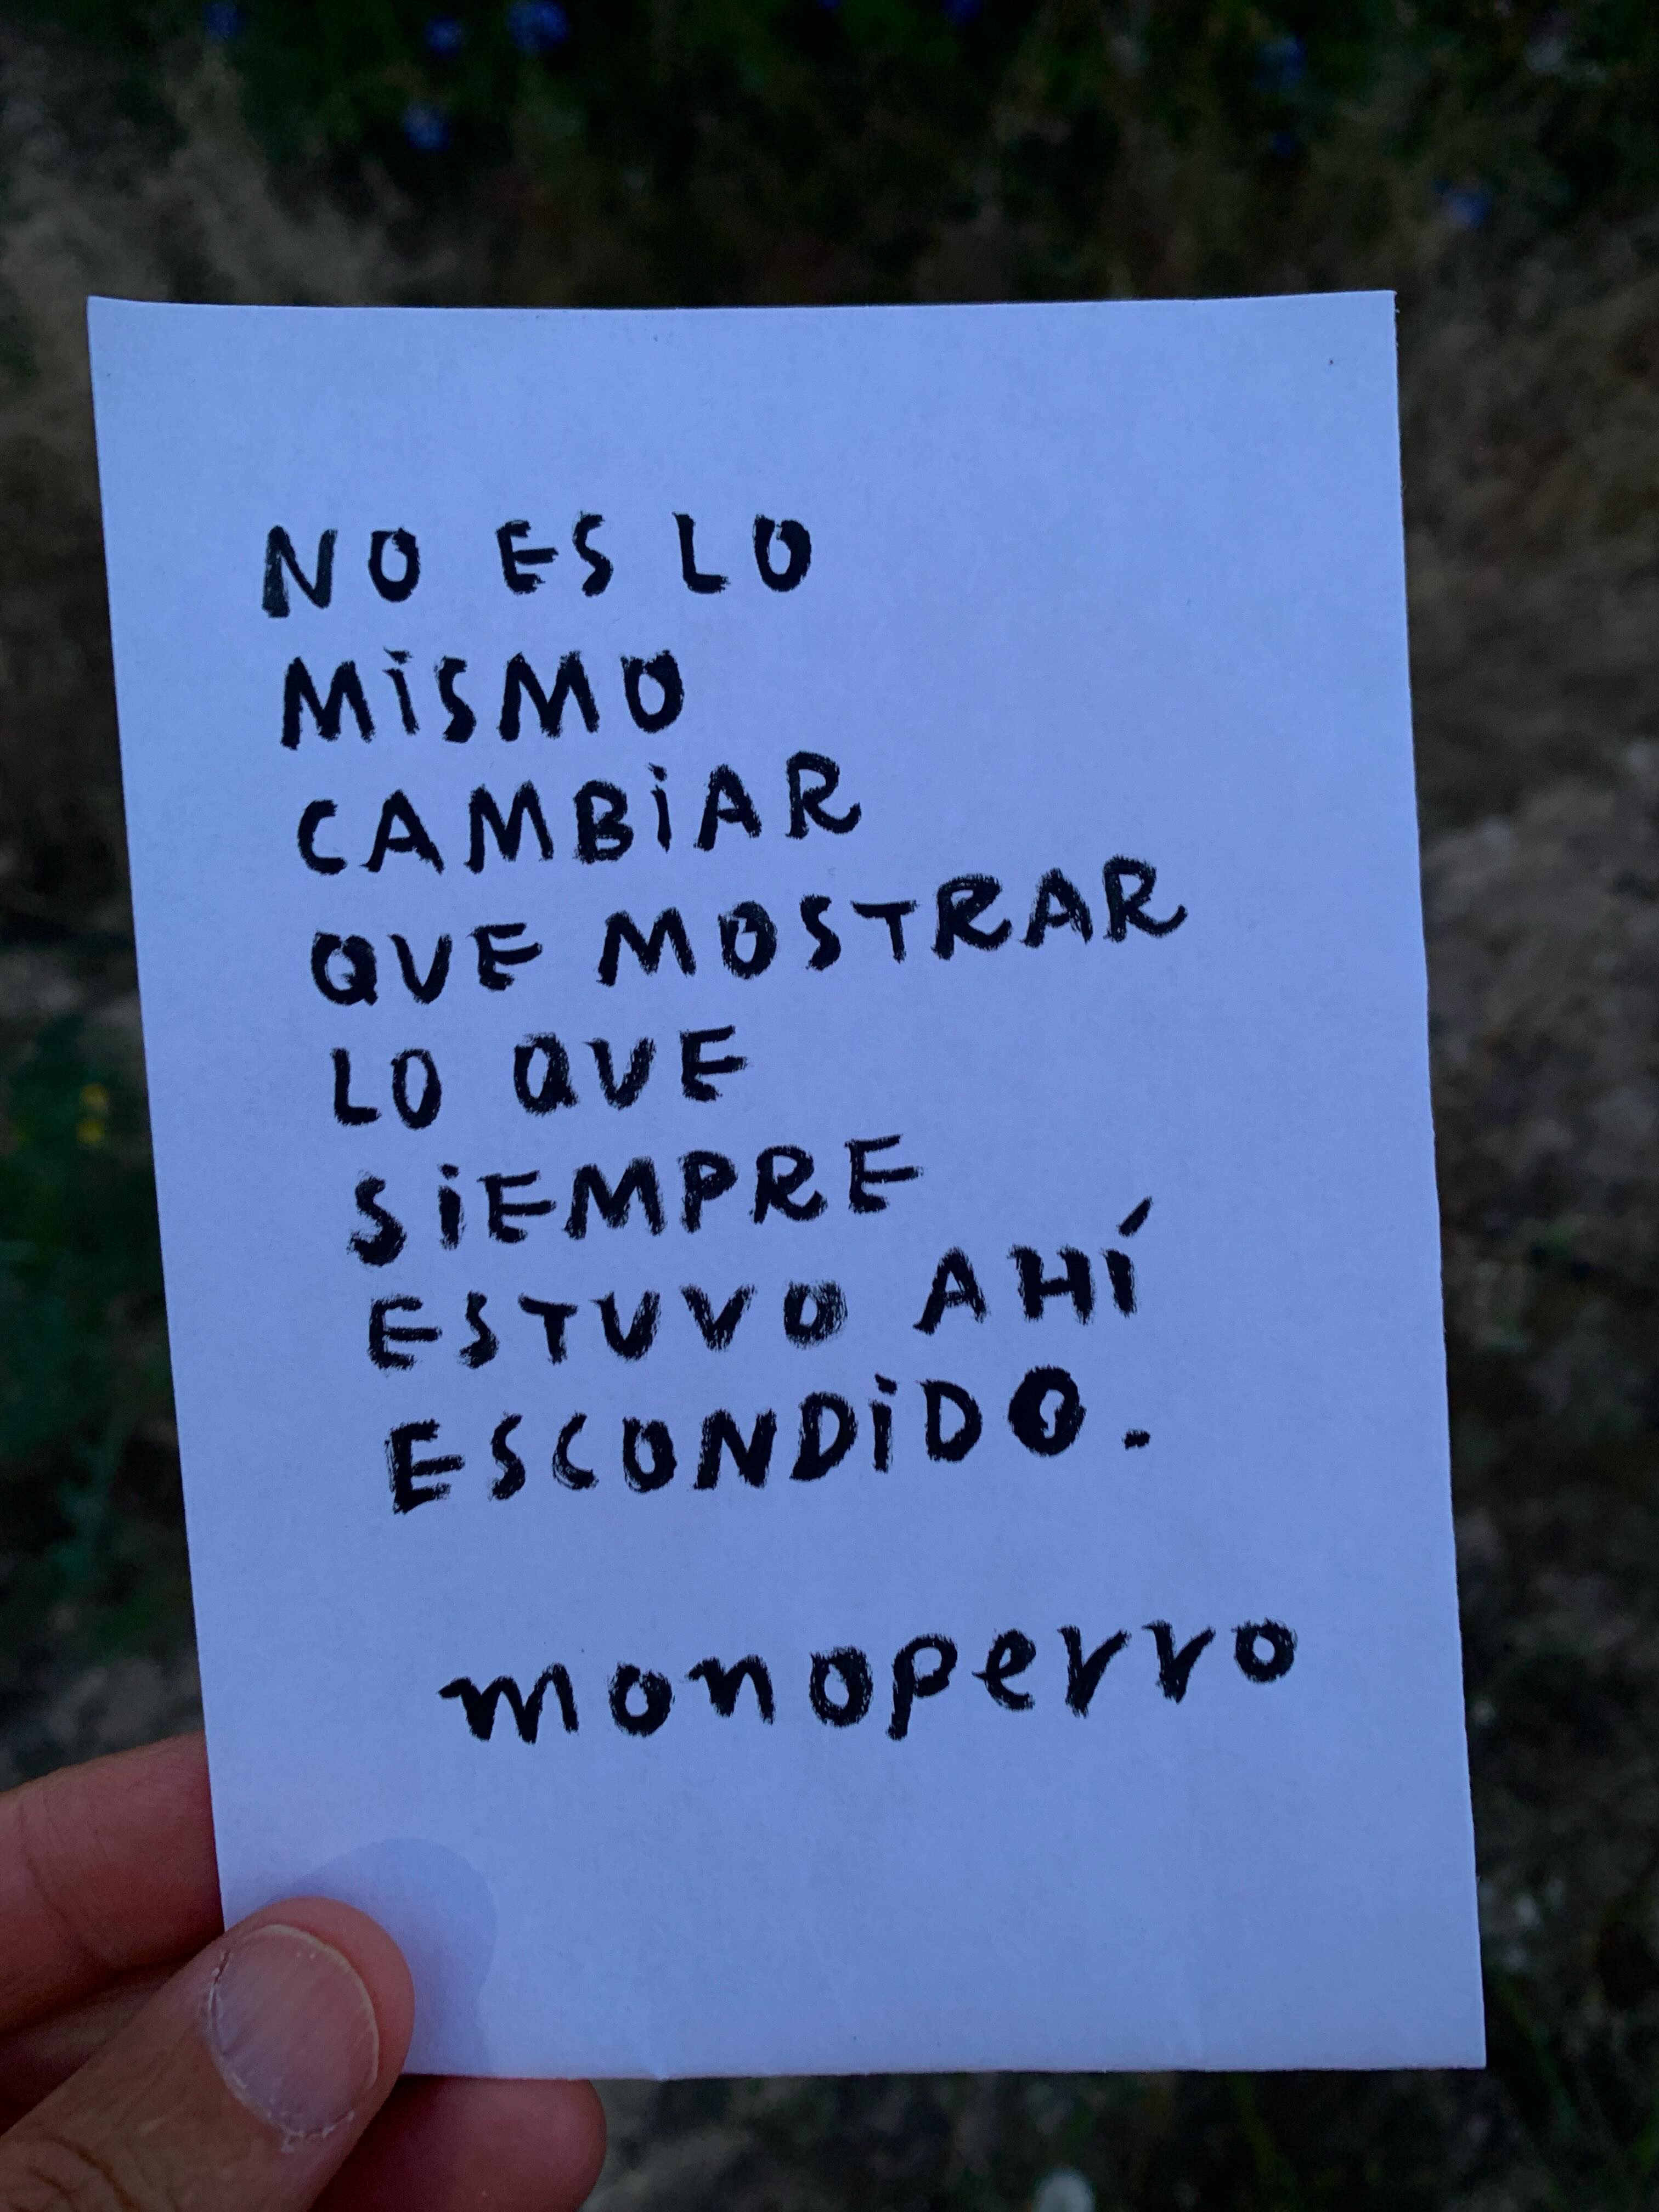 NO ES LO
MiSMO
CAMBiAR
QUE MOSTRAR
LO QUE
SiEMPRE
ESTUVO AHÍ
ESCONDiDO.
monoperro